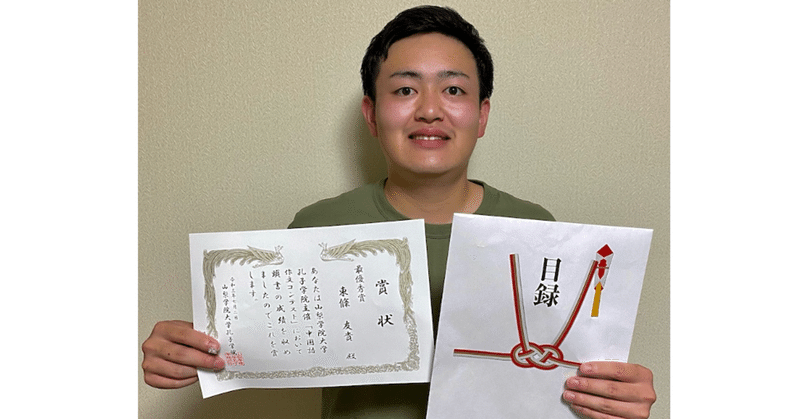 賞状
最優秀賞
東條 友貴 殿
あなたは山梨学院大学
孔子学院主催「中国語
作文コンテスト」において
頭書の成績を収め
ましたのでこれを賞
します
山梨学院大学孔子学院
目録